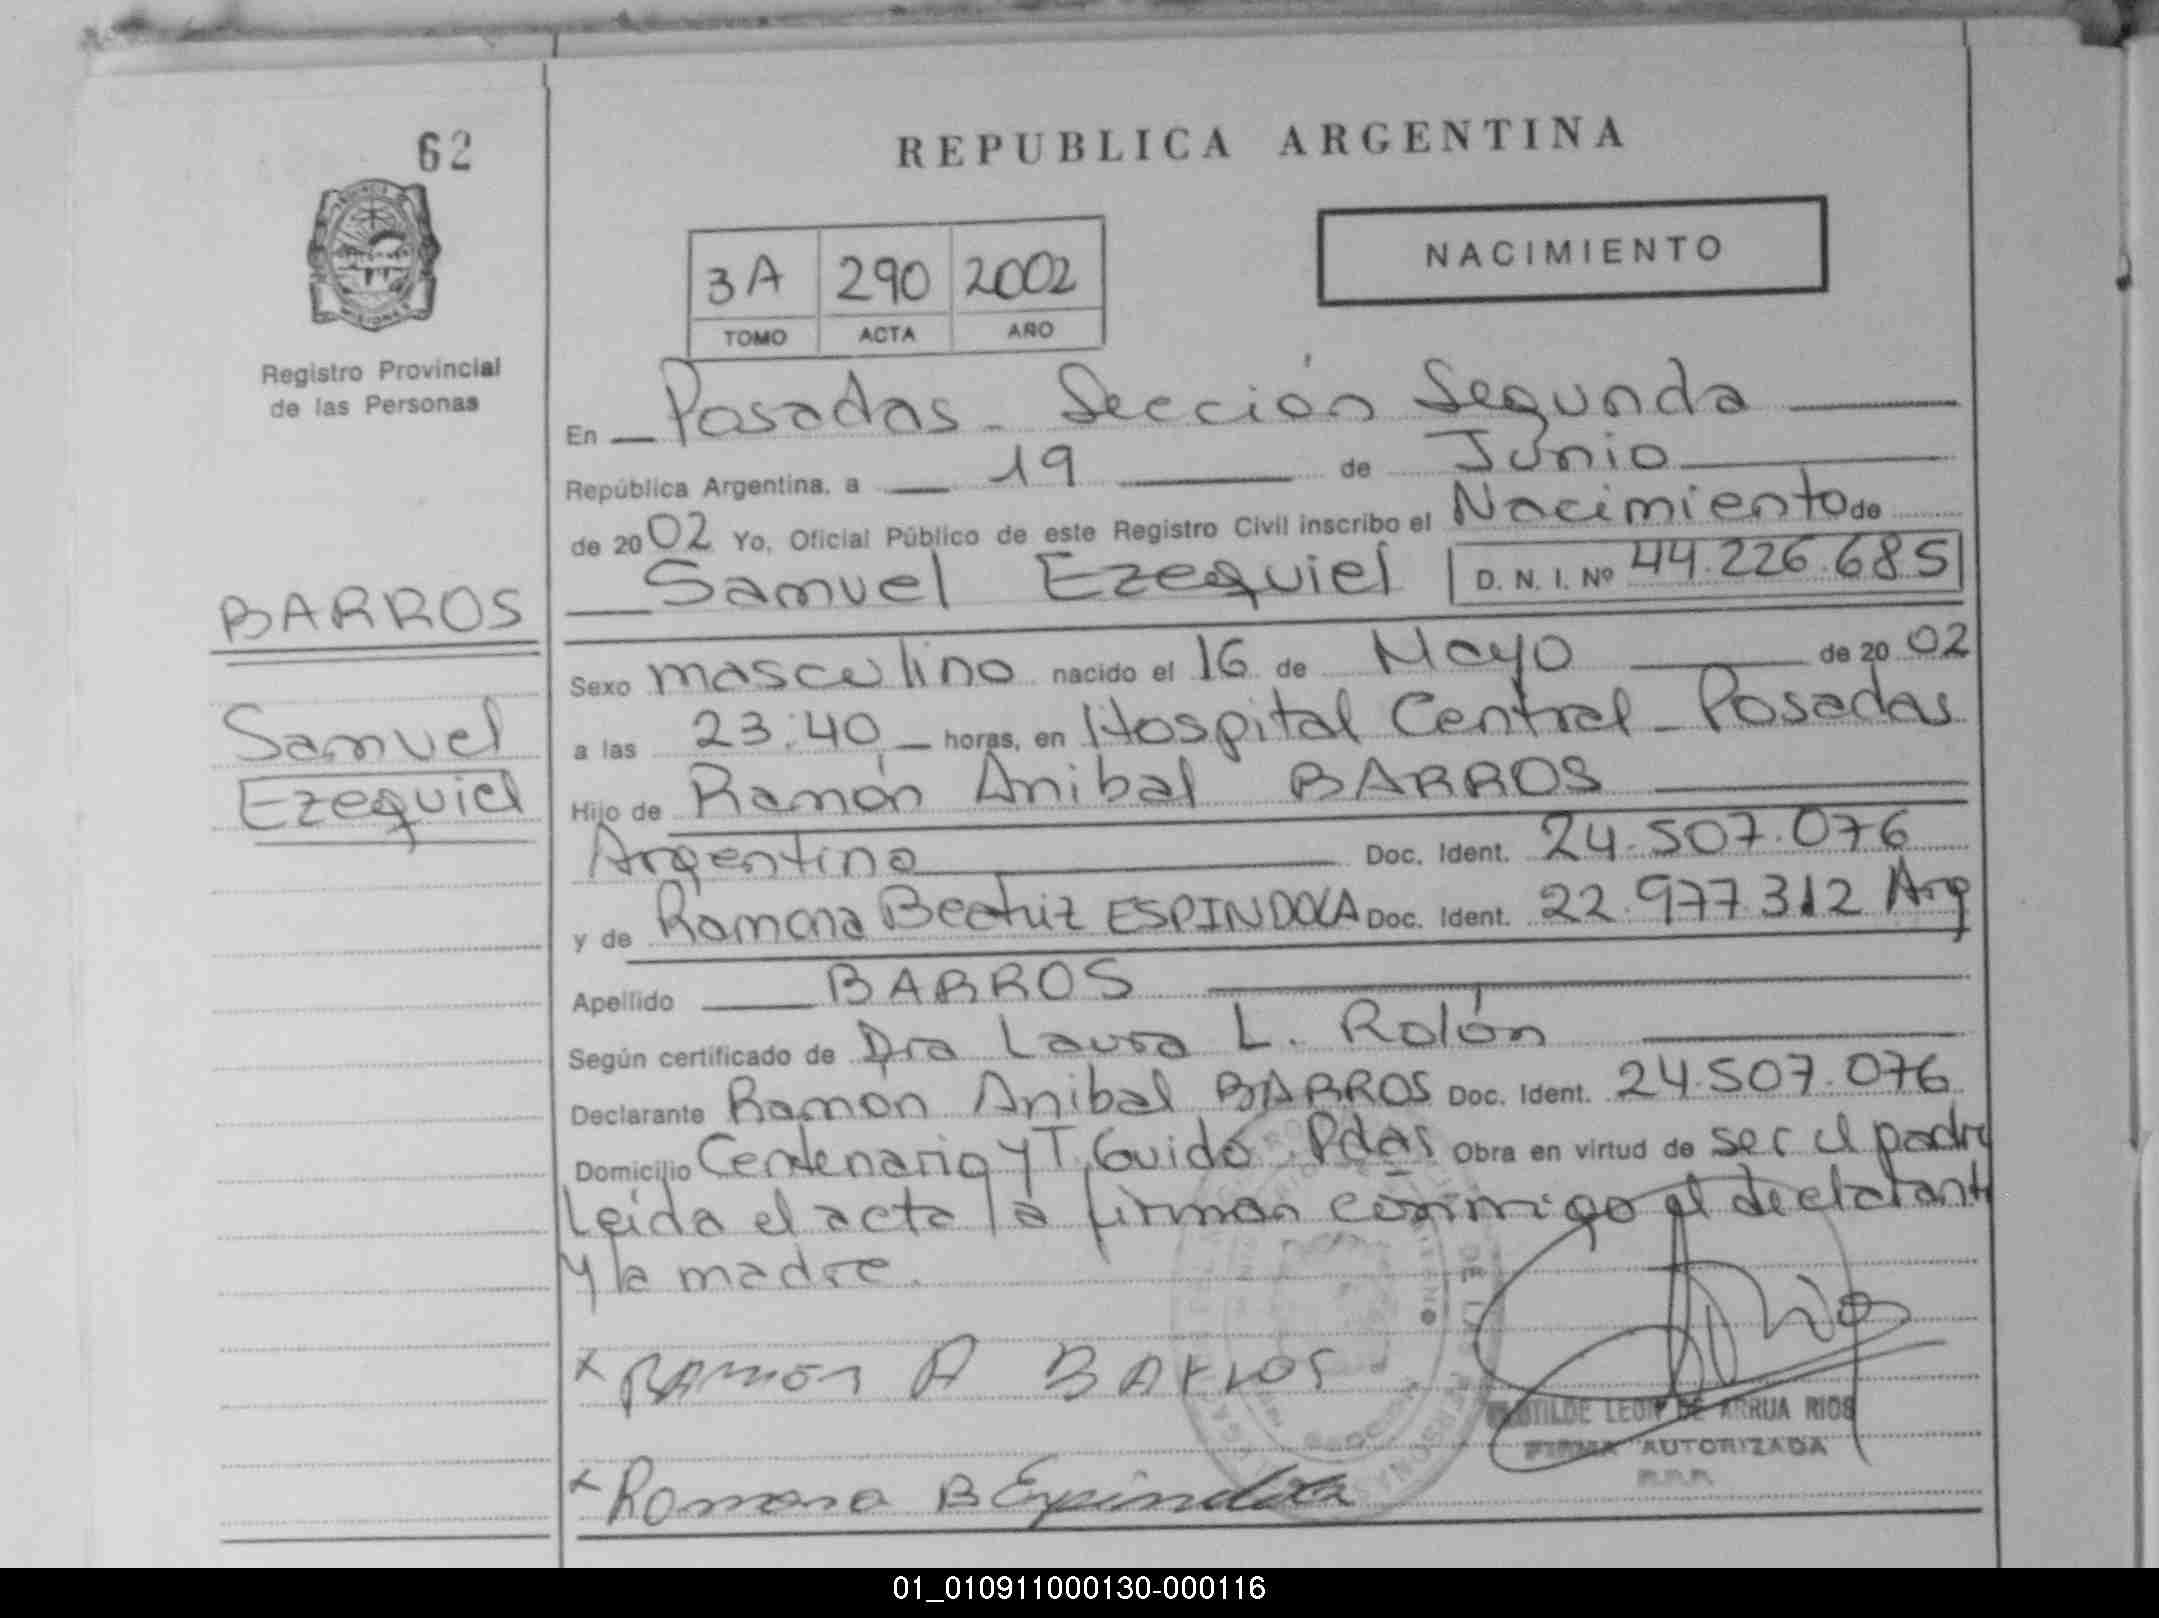 62
REPUBLICA ARGENTINA
NACIMIENTO
3A 290 2002
TOMO ACTA AÑO
Registro Provincial
de las Personas
En Posadas - Sección Segunda
República Argentina, a 19 de Junio
de 2002 Yo, Oficial Público de este Registro Civil inscribo el Nacimiento de
Samuel Ezequiel D. N. I. Nº 44.226.685
BARROS
Samuel
Ezequiel
Sexo masculino nacido el 16 de Mayo de 2002
a las 23:40 horas, en Hospital Central - Posadas
Hijo de Ramón Anibal BARROS
Argentino Doc. Ident. 24.507.076
y de Ramona Beatriz ESPINDOLA Doc. Ident. 22.977.312 Arg
Apellido BARROS
Según certificado de Dra Laura L. Rolón
Declarante Ramón Anibal BARROS Doc. Ident. 24.507.076
Domicilio Centenario y T. Guido Pdas Obra en virtud de ser el padre
Leída el acta la firman conmigo el declarante
y la madre.
x Ramon A Barros
x Ramona B Espindola
LEON DE ARRUA RIOS
FIRMA AUTORIZADA
01_010911000130-000116